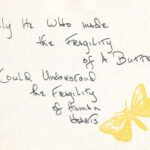 ly He Who made
the Fragility
of A Butte
Could Understand
the Fragility
of Human
Hearts